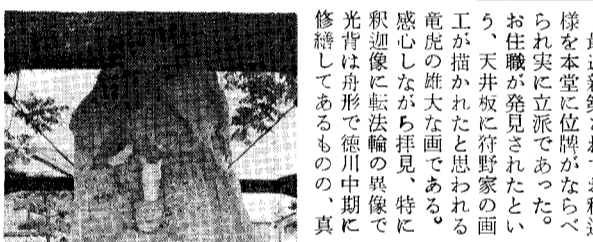 様を本堂に位牌がならべ
られ実に立派であった。
お住職が発見されたとい
う、天井板に狩野家の画
工が描かれたと思われる
竜虎の雄大な画である。
感心しながら拝見、特に
釈迦像に転法輪の異像で
光背は舟形で徳川中期に
修繕してあるものの、真